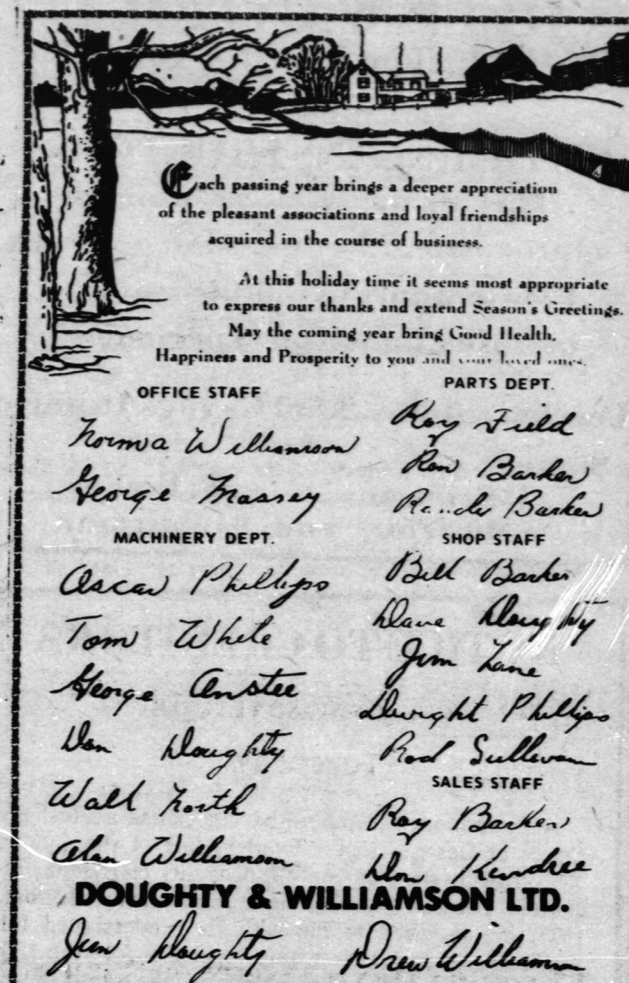 Each passing year brings a deeper appreciation
of the pleasant associations and loyal friendships
acquired in the course of business.
At this holiday time it seems most appropriate
to express our thanks and extend Season's Greetings.
May the coming year bring Good Health,
Happiness and Prosperity to you and your loved ones.
OFFICE STAFF
Norma Williamson
George Massey
PARTS DEPT.
Roy Field
Ron Barker
Barker
MACHINERY DEPT.
Oscar Phillips
Tom White
George Anstee
Don Doughty
Walt North
Alan Williamson
SHOP STAFF
Bill Barker
Dave Doughty
Jim Lane
Dwight Phillips
Rod Sullivan
SALES STAFF
Roy Barker
Don Kendree
DOUGHTY & WILLIAMSON LTD.
Jim Doughty
Drew Williamson